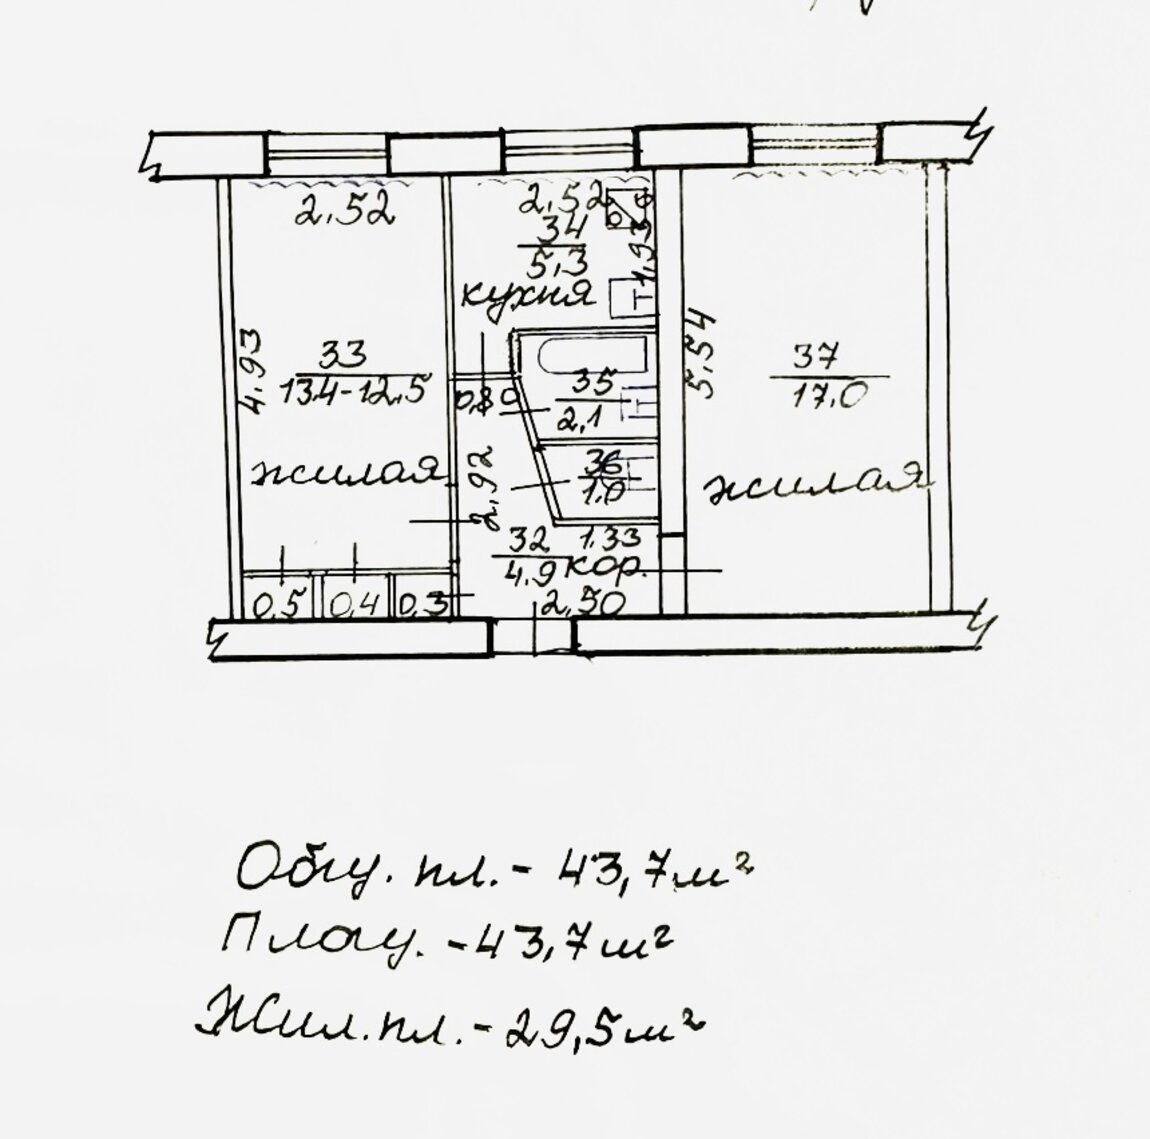 2.52
2.52
34
5,3
1.93
кухня
4.93
33
13.4-12,5
жилая
0,80
35
2,1
5.54
37
17.0
жилая
2,92
36
1.0
32
4.9
1.33
кор.
0,5
0,4
0,3
2,50
Общ. пл. - 43,7 м²
Площ. - 43,7 м²
Жил. пл. - 29,5 м²